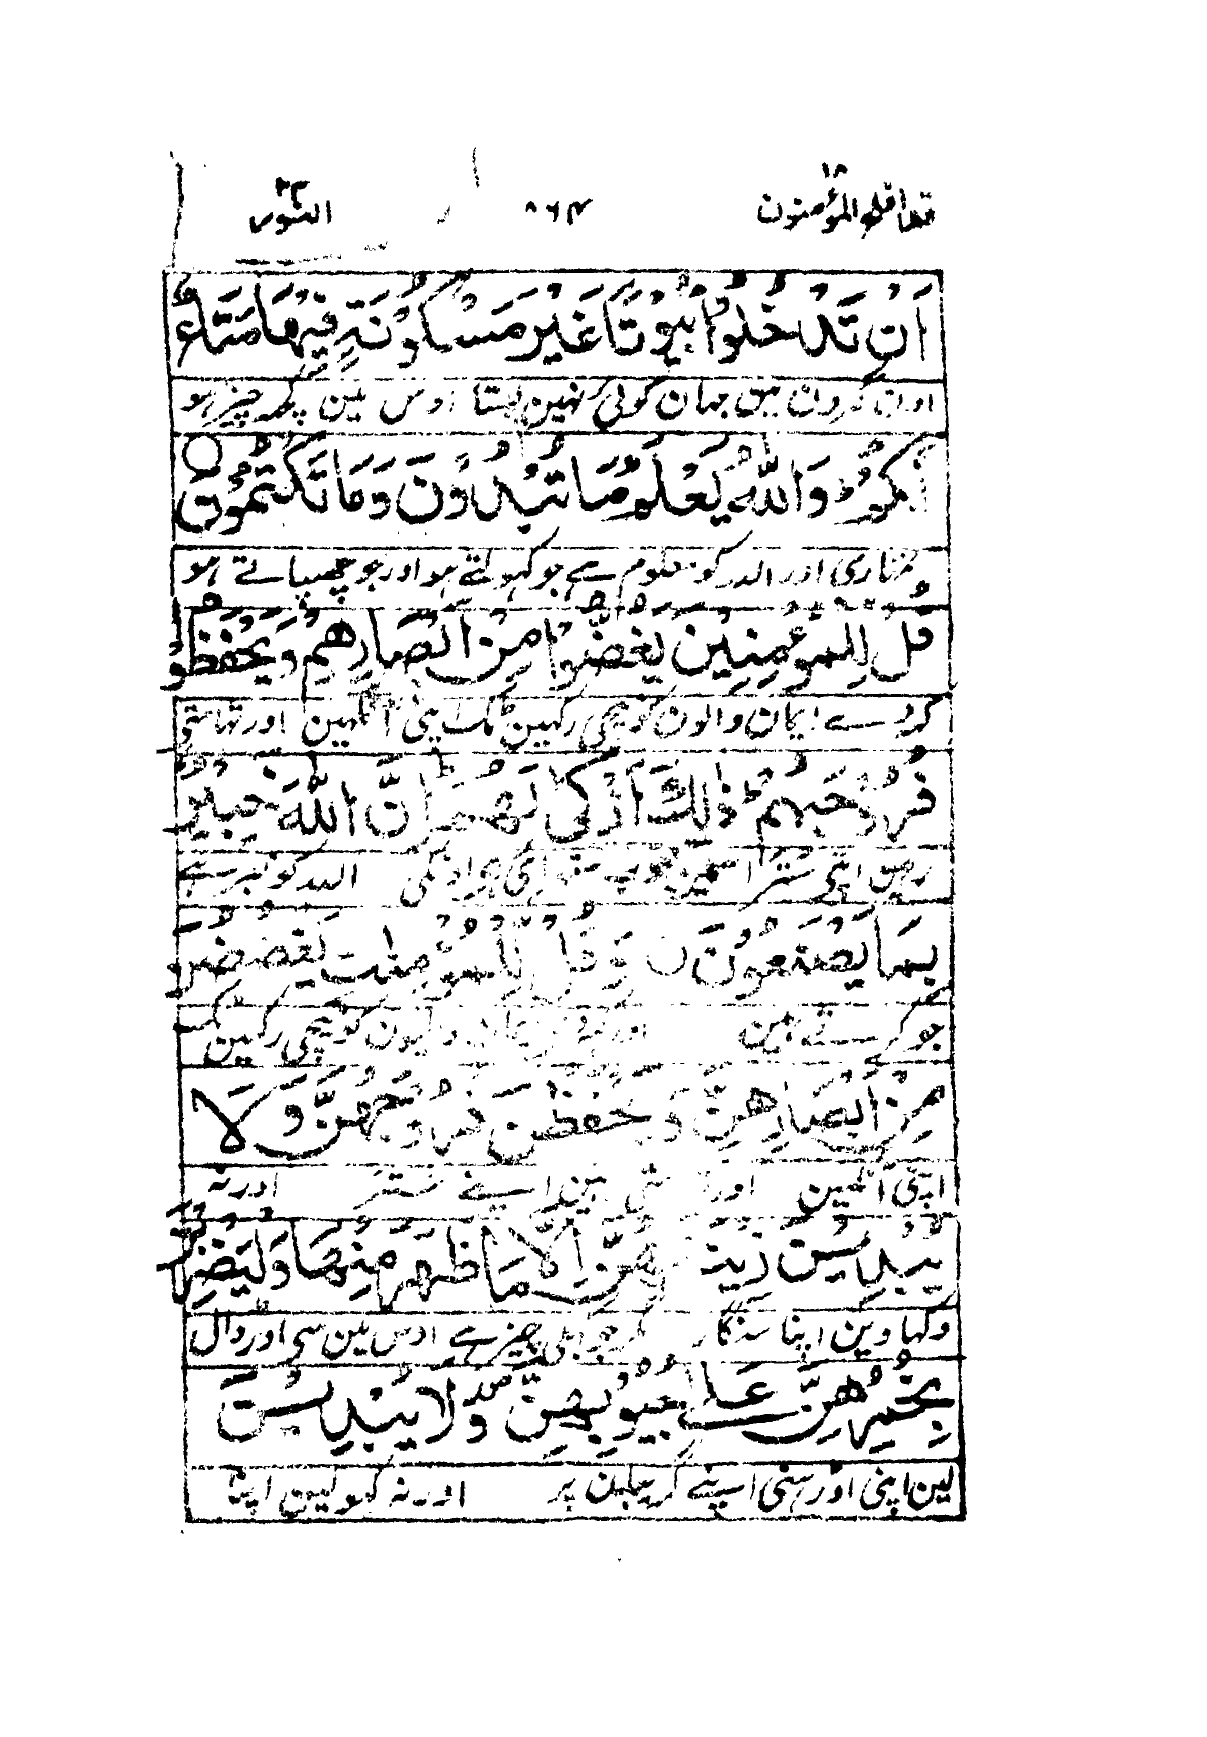 قد افلح المؤمنون ١٨ ٨٦٤ النور ٢٣
اَنْ تَدْخُلُوْا بُيُوْتًا غَيْرَ مَسْكُوْنَةٍ فِيْهَا مَتَاعٌ
اون گہرون مین جہان کوئی نہین بستا اوس مین کچھہ چیز ہو
لَّكُمْ ؕ وَاللّٰهُ يَعْلَمُ مَا تُبْدُوْنَ وَمَا تَكْتُمُوْنَ
تمہاری اور اللہ کو معلوم ہے جو کہولتے ہو اور جو چھپاتے ہو
قُلْ لِلْمُؤْمِنِيْنَ يَغُضُّوْا مِنْ اَبْصَارِهِمْ وَيَحْفَظُوْا
کہدے ایمان والون کو نیچی رکہین ٹک اپنی آنکہین اور تہامتی
فُرُوْجَهُمْ ؕ ذٰلِكَ اَزْكٰى لَهُمْ ؕ اِنَّ اللّٰهَ خَبِيْرٌ
رہین اپنے ستر اسمین خوب ستہرائی ہی اونکی اللہ کو خبر ہے
بِمَا يَصْنَعُوْنَ وَ قُلْ لِّلْمُؤْمِنٰتِ يَغْضُضْنَ
جو کرتے ہین اور والیون کو نیچی رکہین ٹک
مِنْ اَبْصَارِهِنَّ وَ يَحْفَظْنَ فُرُوْجَهُنَّ وَلَا
اپنی آنکہین اور رہین اپنے ستر اور نہ
يُبْدِيْنَ زِيْنَتَهُنَّ اِلَّا مَا ظَهَرَ مِنْهَا وَلْيَضْرِبْنَ
دکہاوین اپنا سنگار مگر جو کہلی چیز ہے اوس مین سی اور ڈال
بِخُمُرِهِنَّ عَلٰى جُيُوْبِهِنَّ ۪ وَلَا يُبْدِيْنَ
لین اپنی اوڑہنی اپنے گریبان پر اور نہ کہولین اپنا